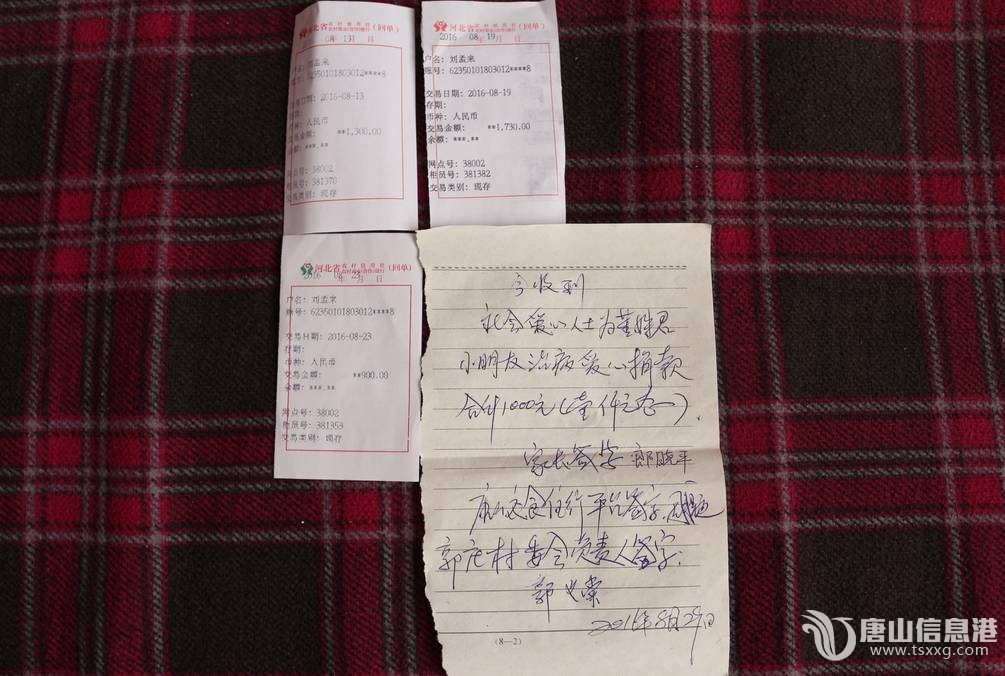 河北省农村信用社农村商业(合作)银行(回单)
08月13日
户名：刘孟来
62350101803012****8
2016-08-13
币种：人民币
交易金额： **1,300.00
余额：***.**
网点号：38002
柜员号：381370
交易类别：现存
河北省农村信用社农村商业(合作)银行(回单)
2016年08月19日
户名：刘孟来
账号：62350101803012****8
交易日期：2016-08-19
存期：
币种：人民币
交易金额： **1,730.00
余额：***.**
网点号：38002
柜员号：381382
交易类别：现存
河北省农村信用社农村商业(合作)银行(回单)
2016年08月23日
户名：刘孟来
账号：62350101803012****8
交易日期：2016-08-23
存期：
币种：人民币
交易金额： **900.00
余额：***.**
网点号：38002
柜员号：381353
交易类别：现存
今收到
社会爱心人士为董姓君
小朋友治病爱心捐款
合计1000元(壹仟元
家长签字
食住行平台签字
郭庄村委会负责人签字.
郭
2016年8月29日
(8—2)
唐山信息港
www.tsxxg.com